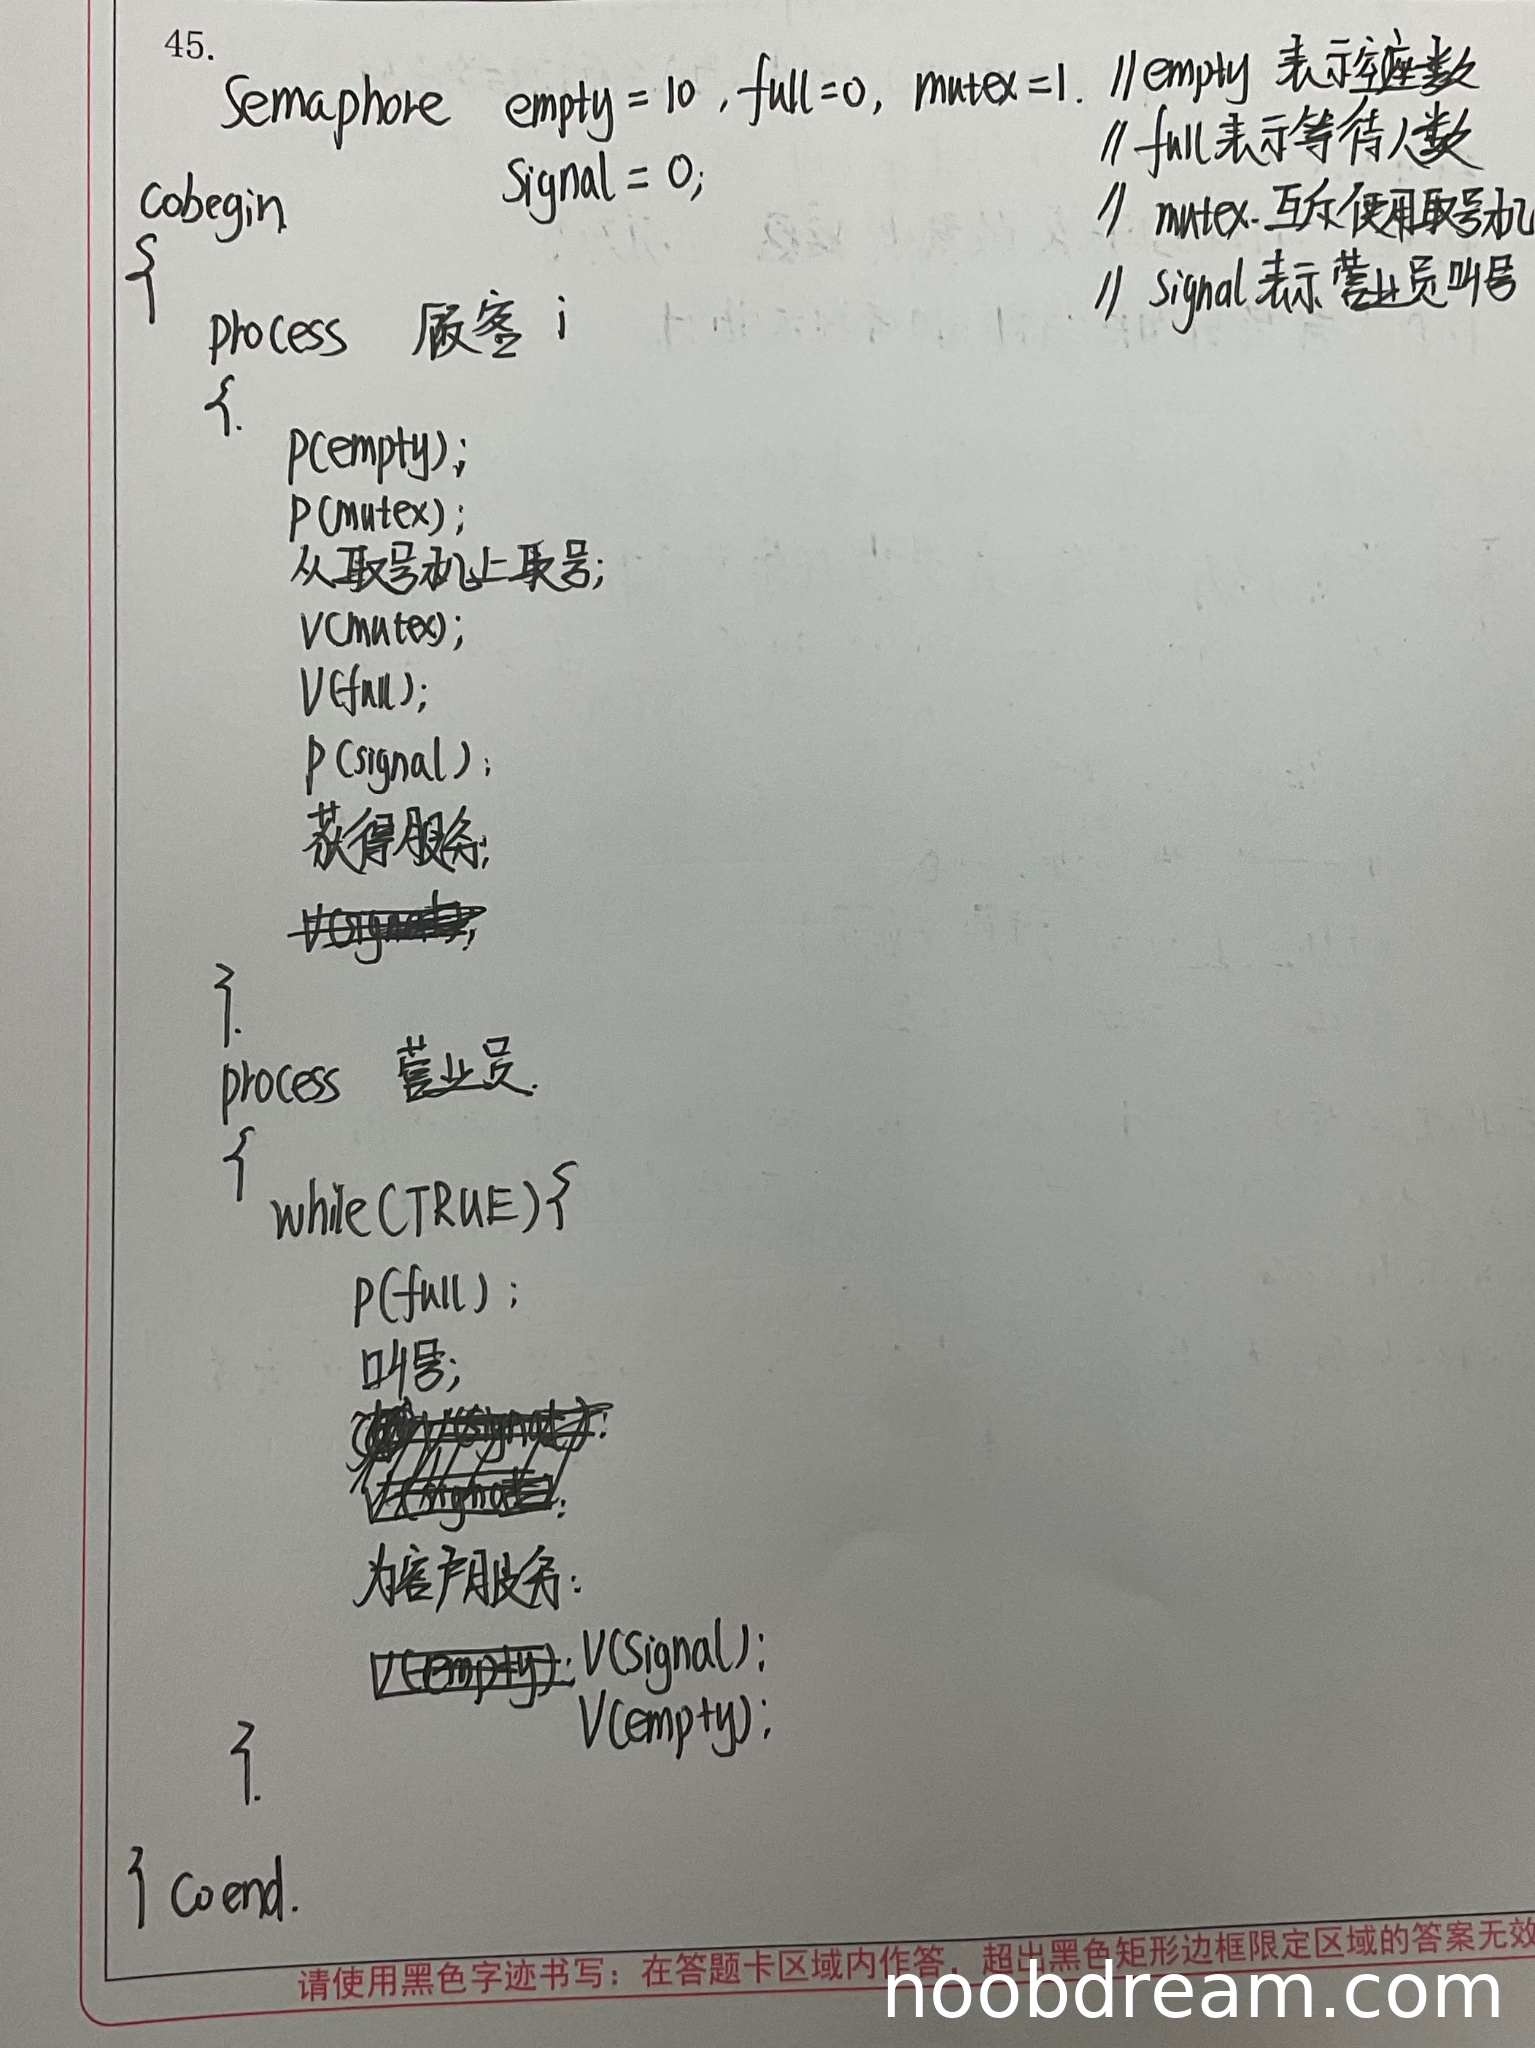 45.
Semaphore empty = 10 , full = 0, mutex = 1. //empty 表示空座数
signal = 0; // full表示等待人数
// mutex. 互斥使用取号机
// signal 表示营业员叫号
cobegin
{
process 顾客 i
{.
P(empty);
P(mutex);
从取号机上取号;
V(mutex);
V(full);
P(signal);
获得服务;
V(signal);
}.
process 营业员.
{
while(TRUE){
P(full);
叫号;
V(signal);
V(signal);
为客户服务;
V(empty); V(signal);
V(empty);
}.
} coend.
请使用黑色字迹书写: 在答题卡区域内作答, 超出黑色矩形边框限定区域的答案无效
noobdream.com